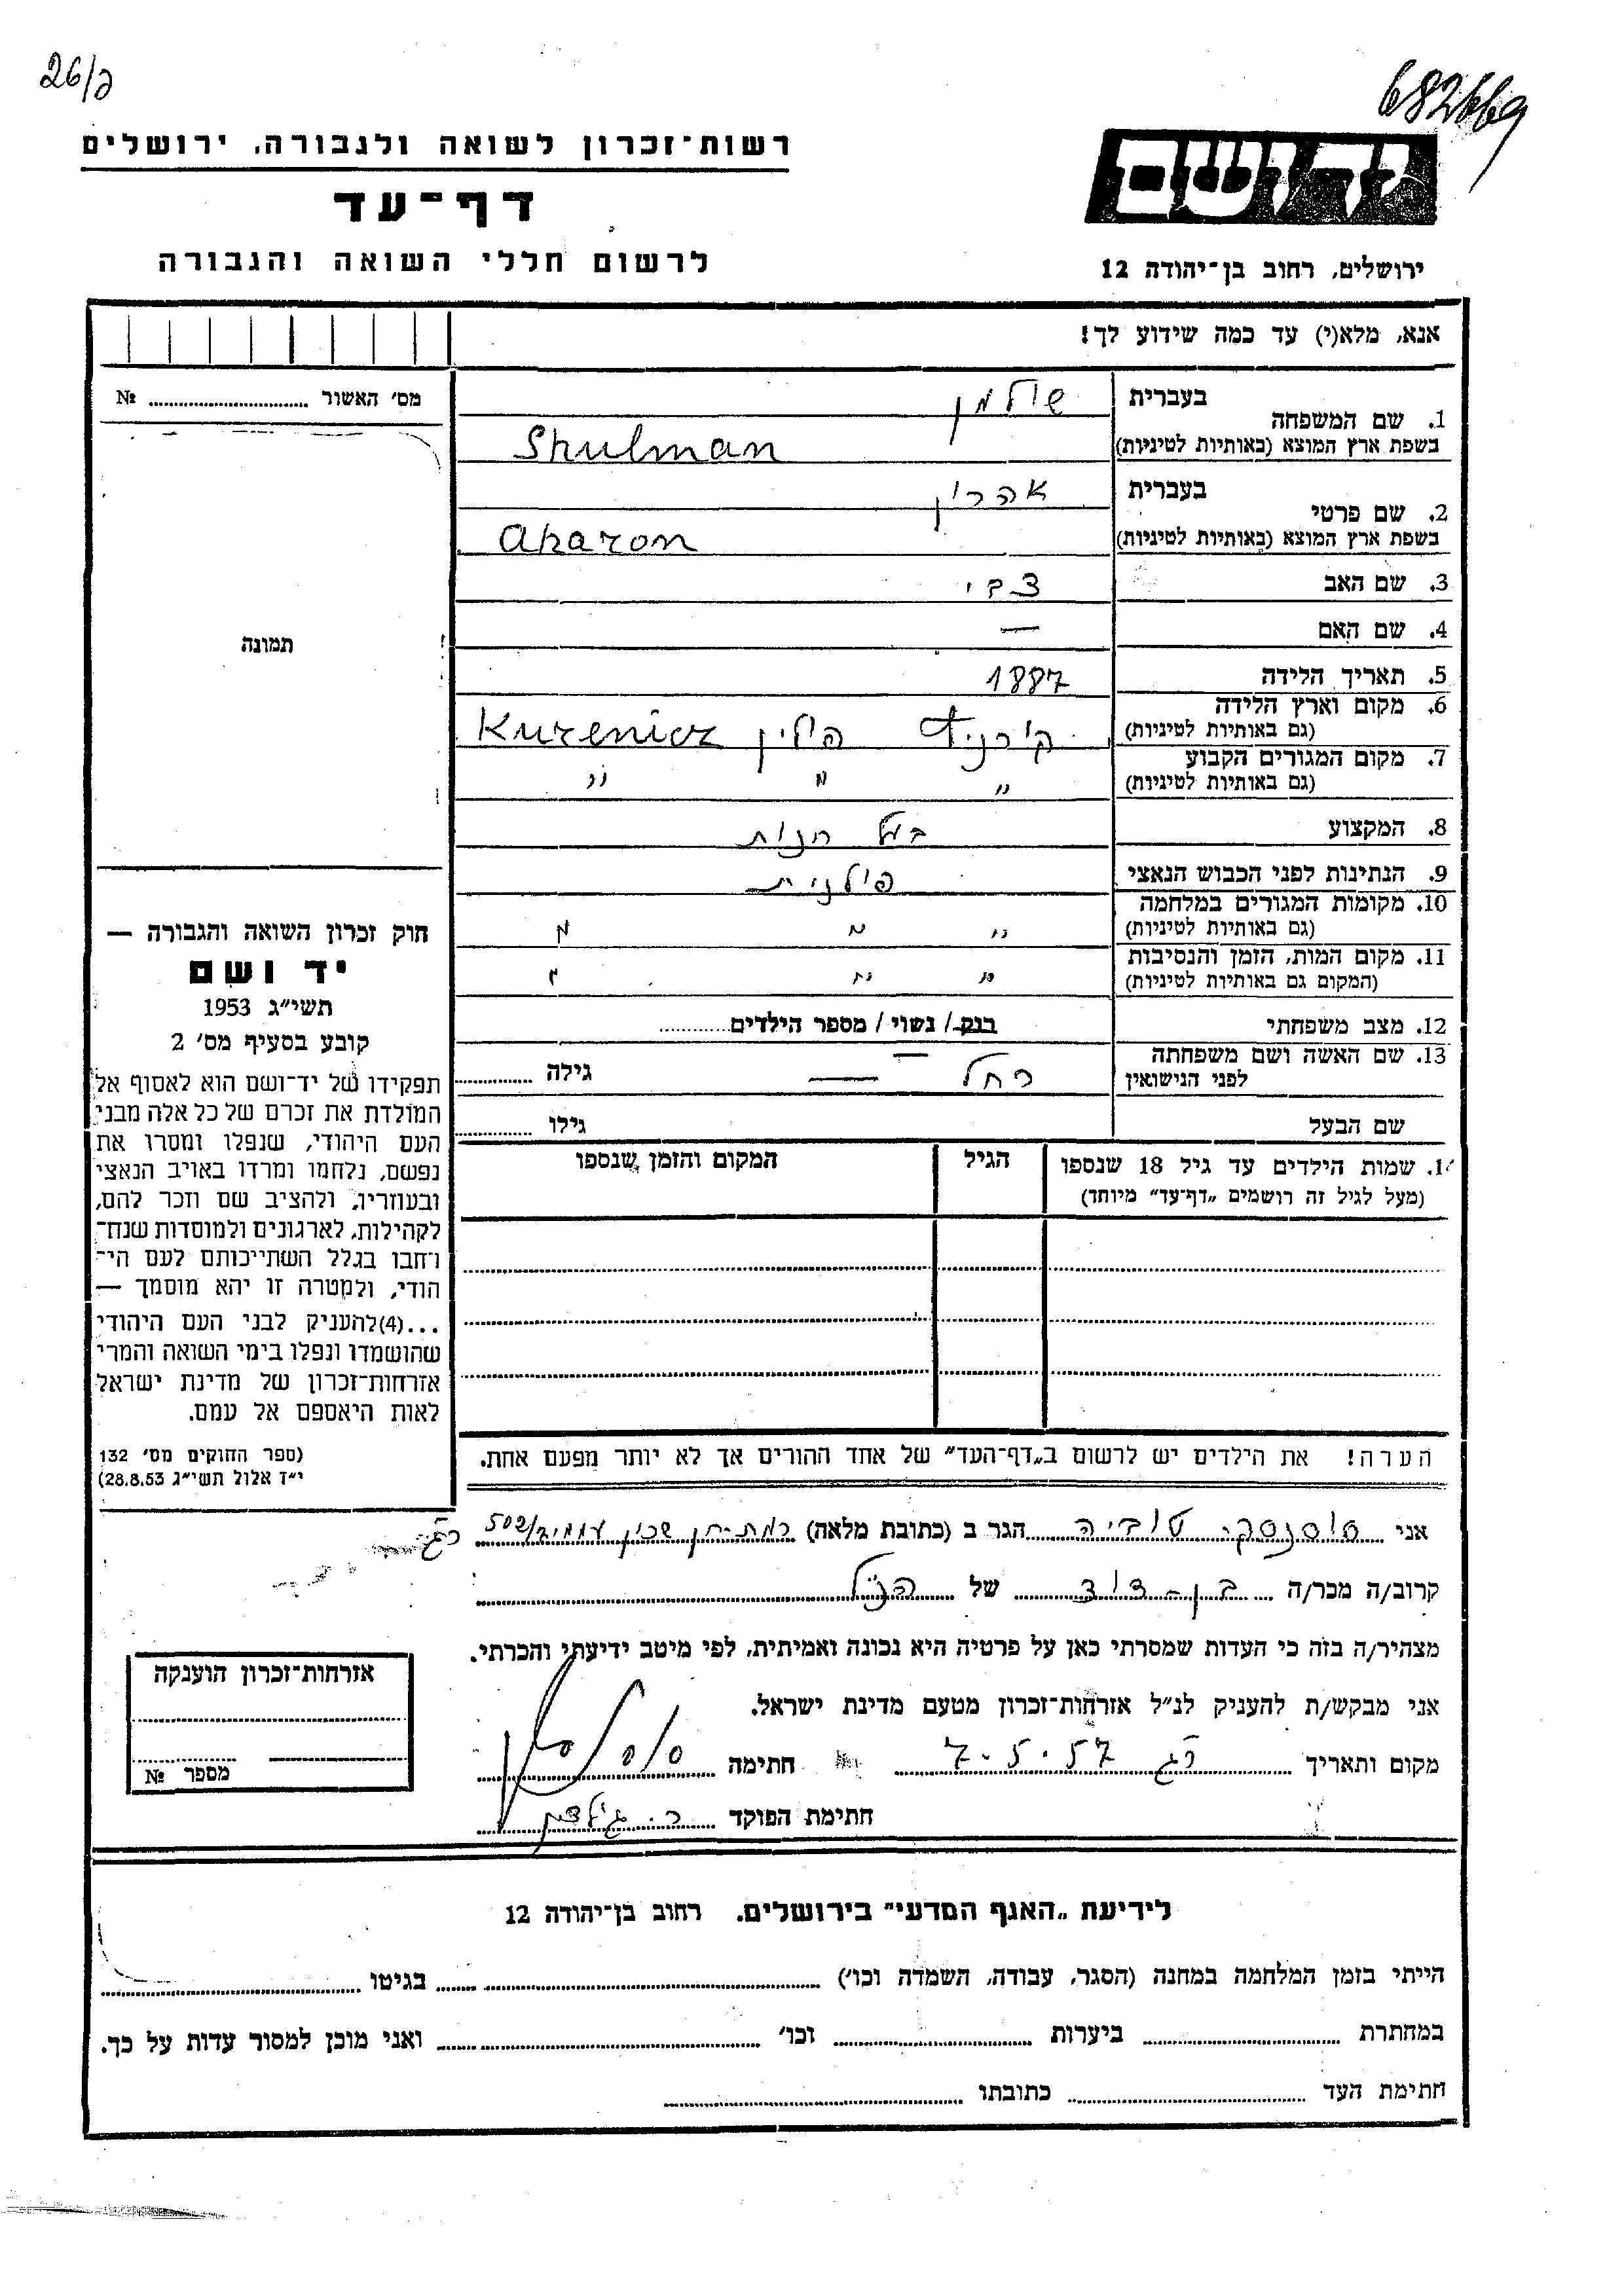 26/ב
682669
רשות-זכרון לשואה ולגבורה, ירושלים
דף-עד
לרשום חללי השואה והגבורה
יד ושם
ירושלים, רחוב בן-יהודה 12
אנא, מלא(י) עד כמה שידוע לך!
מס׳ האשור № 
1. שם המשפחה
בעברית שולמן
בשפת ארץ המוצא (באותיות לטיניות) Shulman
2. שם פרטי
בעברית אהרון
בשפת ארץ המוצא (באותיות לטיניות) Aharon
3. שם האב צבי
4. שם האם —
5. תאריך הלידה 1887
6. מקום וארץ הלידה (גם באותיות לטיניות) קורניץ פולין Kurenicz
7. מקום המגורים הקבוע (גם באותיות לטיניות) " " "
8. המקצוע בעל חנות
9. הנתינות לפני הכבוש הנאצי פולנית
10. מקומות המגורים במלחמה (גם באותיות לטיניות) " " "
11. מקום המות, הזמן והנסיבות (המקום גם באותיות לטיניות) " " "
12. מצב משפחתי רווק / נשוי / מספר הילדים
13. שם האשה ושם משפחתה לפני הנישואין רחל — גילה
שם הבעל גילו
14. שמות הילדים עד גיל 18 שנספו הגיל המקום והזמן שנספו
(מעל לגיל זה רושמים „דף-עד" מיוחד)
תמונה
חוק זכרון השואה והגבורה —
יד ושם
תשי״ג 1953
קובע בסעיף מס׳ 2
תפקידו של יד-ושם הוא לאסוף אל
המולדת את זכרם של כל אלה מבני
העם היהודי, שנפלו ומסרו את
נפשם, נלחמו ומרדו באויב הנאצי
ובעוזריו, ולהציב שם וזכר להם,
לקהילות, לארגונים ולמוסדות שנח-
רחבו בגלל השתייכותם לעם הי-
הודי, ולמטרה זו יהא מוסמך —
...(4)להעניק לבני העם היהודי
שהושמדו ונפלו בימי השואה והמרי
אזרחות-זכרון של מדינת ישראל
לאות היאספם אל עמם.
(ספר החוקים מס׳ 132
י״ז אלול תשי״ג 28.8.53)
הערה! את הילדים יש לרשום ב„דף-העד" של אחד ההורים אך לא יותר מפעם אחת.
אני סוסנסקי טוביה הגר ב (כתובת מלאה) רמת-חן שכון עממי 502/ רג
קרוב/ה מכר/ה בן-דוד של הנ״ל
מצהיר/ה בזה כי העדות שמסרתי כאן על פרטיה היא נכונה ואמיתית, לפי מיטב ידיעתי והכרתי.
אני מבקש/ת להעניק לנ״ל אזרחות-זכרון מטעם מדינת ישראל.
מקום ותאריך רג 7.5.57 חתימה
חתימת הפוקד
אזרחות-זכרון הוענקה
מספר №
לידיעת „האגף המדעי" בירושלים. רחוב בן-יהודה 12
הייתי בזמן המלחמה במחנה (הסגר, עבודה, השמדה וכו׳) בגיטו
במחתרת ביערות וכו׳ ואני מוכן למסור עדות על כך.
חתימת העד כתובתו